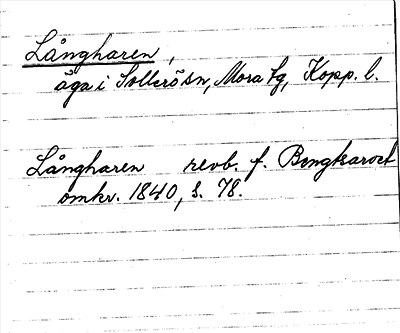 Långharen,
äga i Sollerösn, Mora tg, Kopp. l.
Långharen revb. f. Bengtsarvet
omkr. 1840, s. 78.